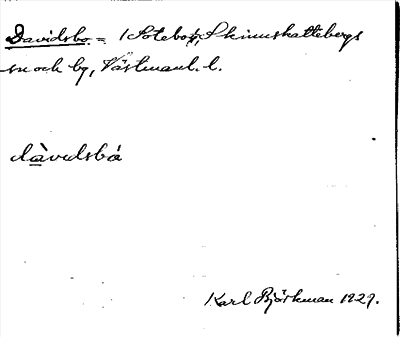 Davidsbo = 1 Sotebo, Skinnskattebergs
sn och by, Västmanl. l.
dàvidsbá
Karl Björkman 1929.